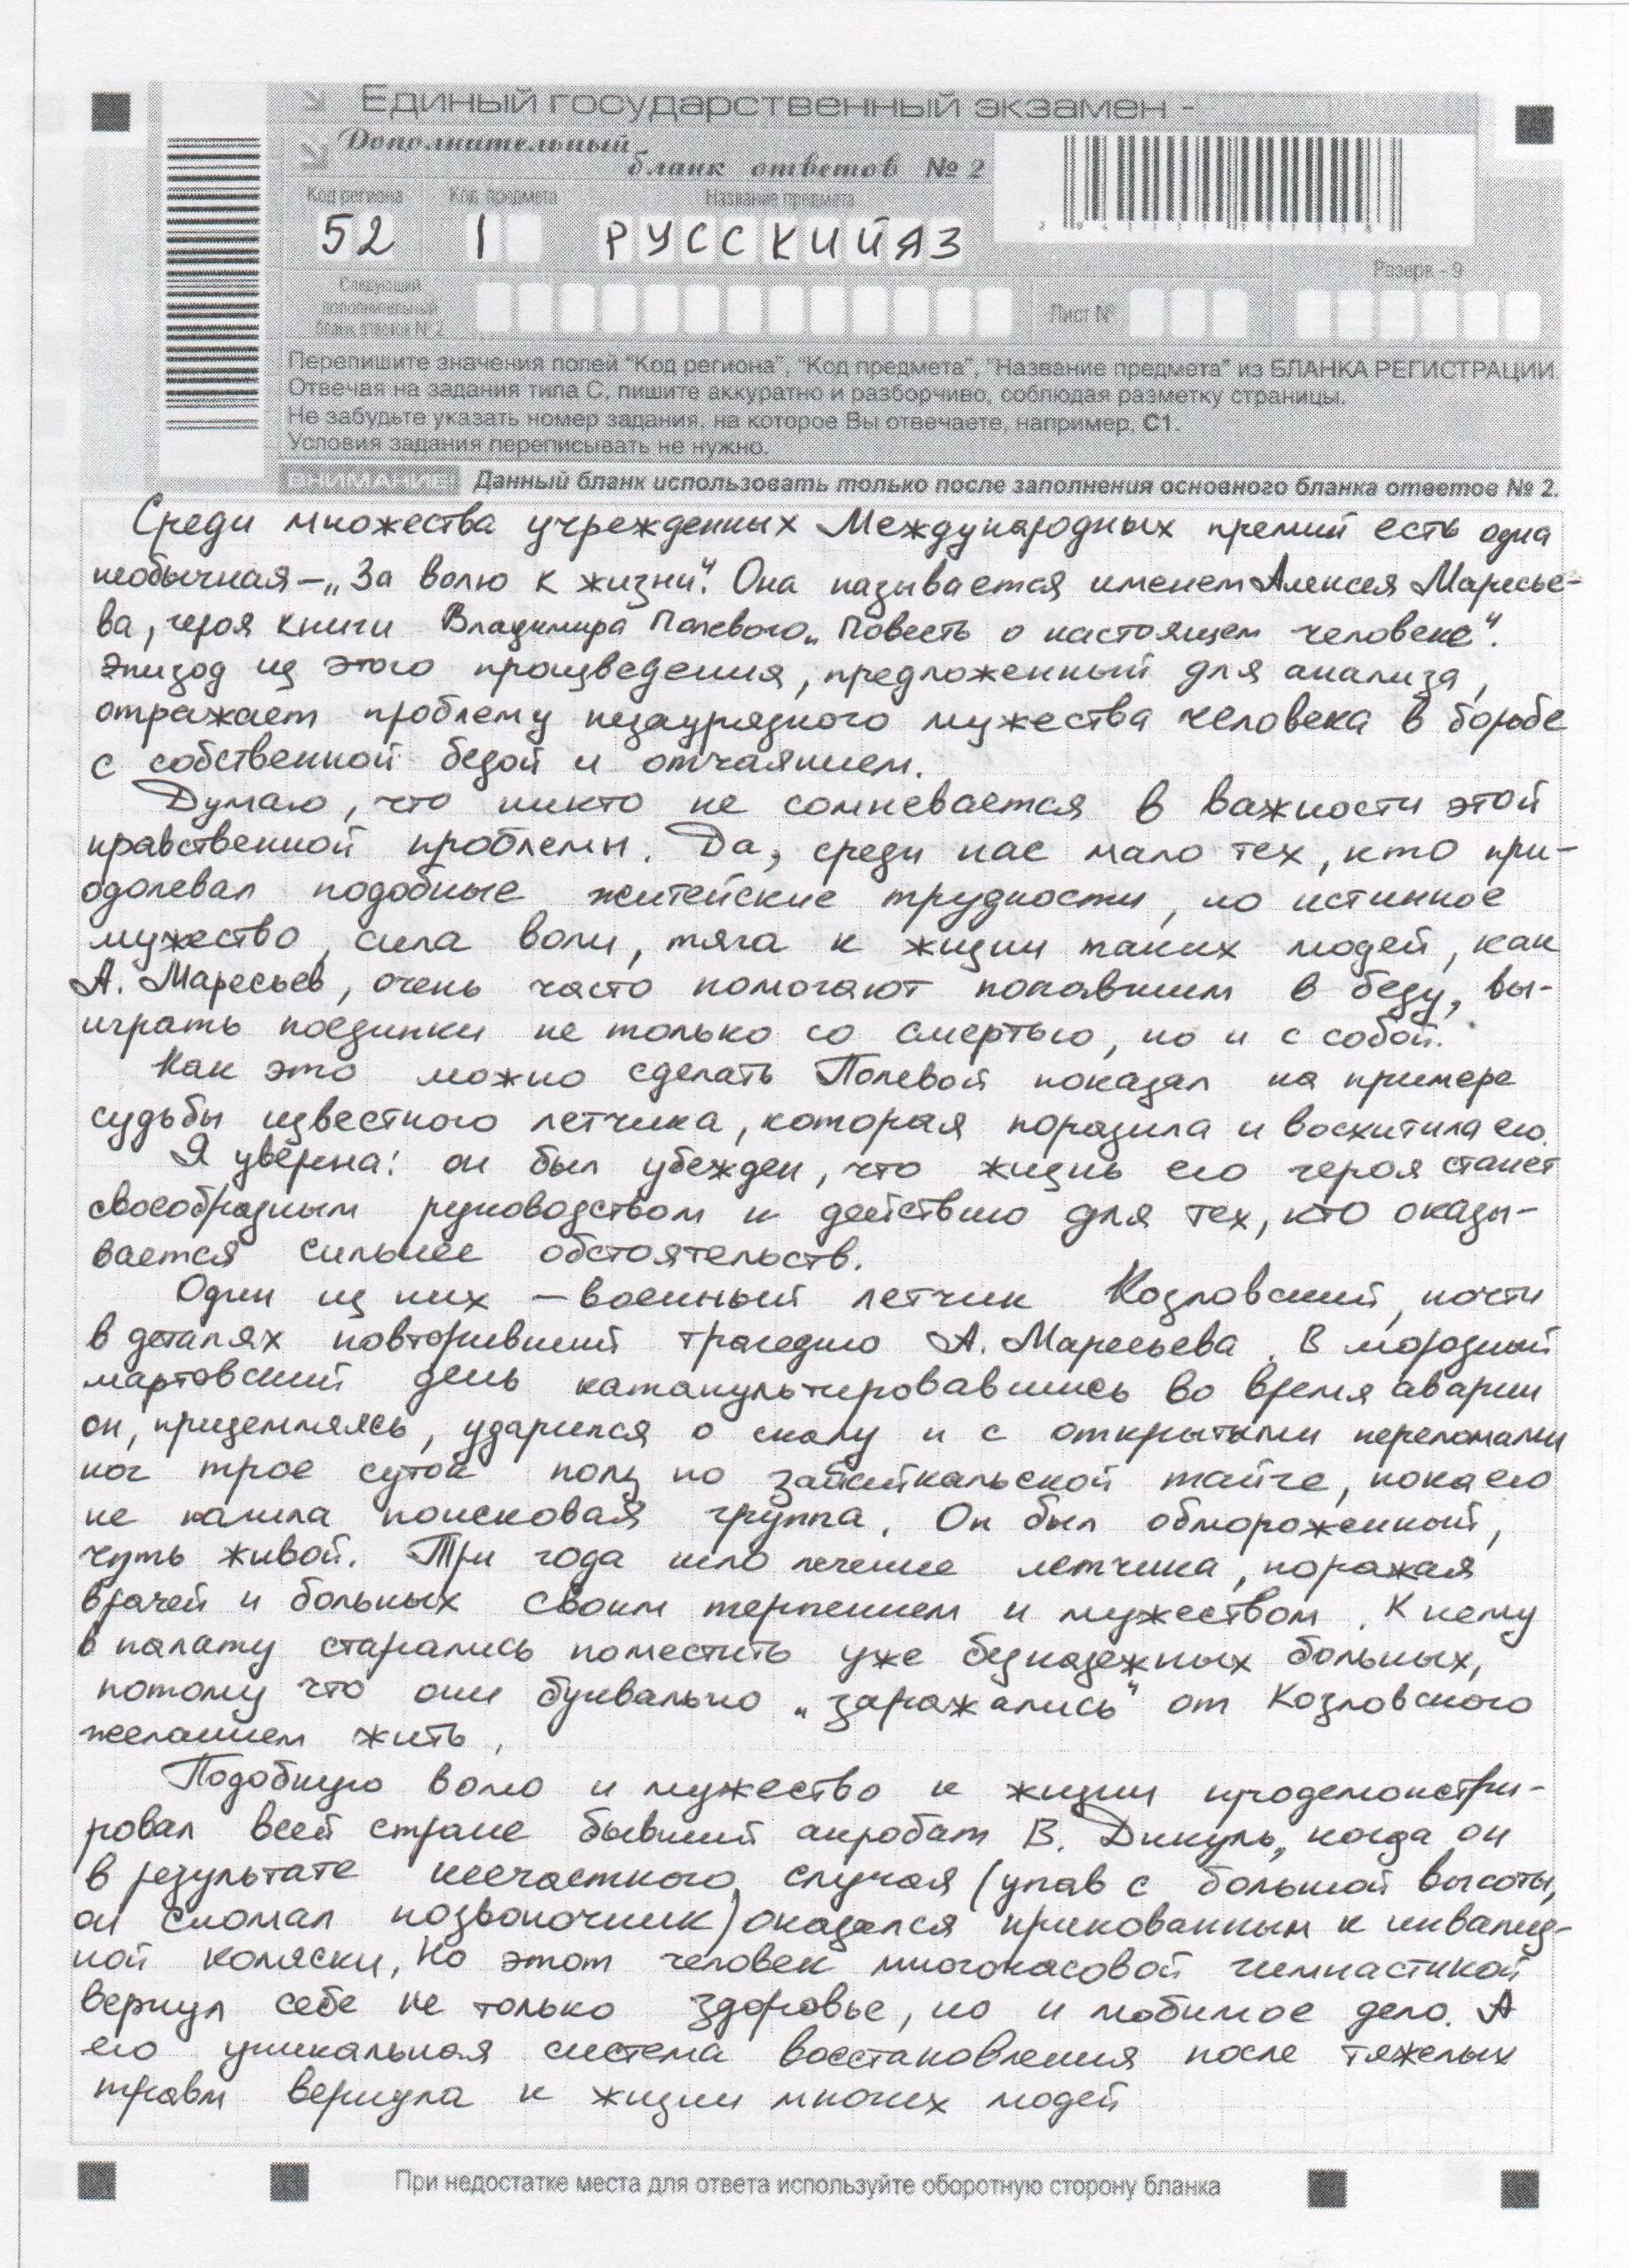 Единый государственный экзамен -
Дополнительный
бланк ответов № 2
Код региона Код предмета Название предмета
52 1 РУССКИЙЯЗ
Резерв - 9
Следующий
дополнительный
бланк ответов № 2
Лист №
Перепишите значения полей "Код региона", "Код предмета", "Название предмета" из БЛАНКА РЕГИСТРАЦИИ.
Отвечая на задания типа С, пишите аккуратно и разборчиво, соблюдая разметку страницы.
Не забудьте указать номер задания, на которое Вы отвечаете, например, С1.
Условия задания переписывать не нужно.
ВНИМАНИЕ! Данный бланк использовать только после заполнения основного бланка ответов № 2.
Среди множества учрежденных Международных премий есть одна
необычная – „За волю к жизни". Она называется именем Алексея Маресье-
ва, героя книги Владимира Полевого „Повесть о настоящем человеке".
Эпизод из этого произведения, предложенный для анализа,
отражает проблему незаурядного мужества человека в борьбе
с собственной бедой и отчаянием.
Думаю, что никто не сомневается в важности этой
нравственной проблемы. Да, среди нас мало тех, кто при-
одолевал подобные житейские трудности, но истинное
мужество, сила воли, тяга к жизни таких людей, как
А. Маресьев, очень часто помогают попавшим в беду, вы-
играть поединки не только со смертью, но и с собой.
Как это можно сделать Полевой показал на примере
судьбы известного летчика, которая поразила и восхитила его.
Я уверена: он был убежден, что жизнь его героя станет
своеобразным руководством к действию для тех, кто оказы-
вается сильнее обстоятельств.
Один из них – военный летчик Козловский, почти
в деталях повторивший трагедию А. Маресьева. В морозный
мартовский день катапультировавшись во время аварии
он, приземляясь, ударился о скалу и с открытыми переломами
ног трое суток полз по забайкальской тайге, пока его
не нашла поисковая группа. Он был обмороженный,
чуть живой. Три года шло лечение летчика, поражая
врачей и больных своим терпением и мужеством. К нему
в палату старались поместить уже безнадежных больных,
потому что они буквально „заражались" от Козловского
желанием жить.
Подобную волю и мужество к жизни продемонстри-
ровал всей стране бывший акробат В. Дикуль, когда он
в результате несчастного случая (упав с большой высоты,
он сломал позвоночник) оказался прикованным к инвалид-
ной коляски, Но этот человек многочасовой гимнастикой
вернул себе не только здоровье, но и любимое дело. А
его уникальная система восстановления после тяжелых
травм вернула к жизни многих людей
При недостатке места для ответа используйте оборотную сторону бланка